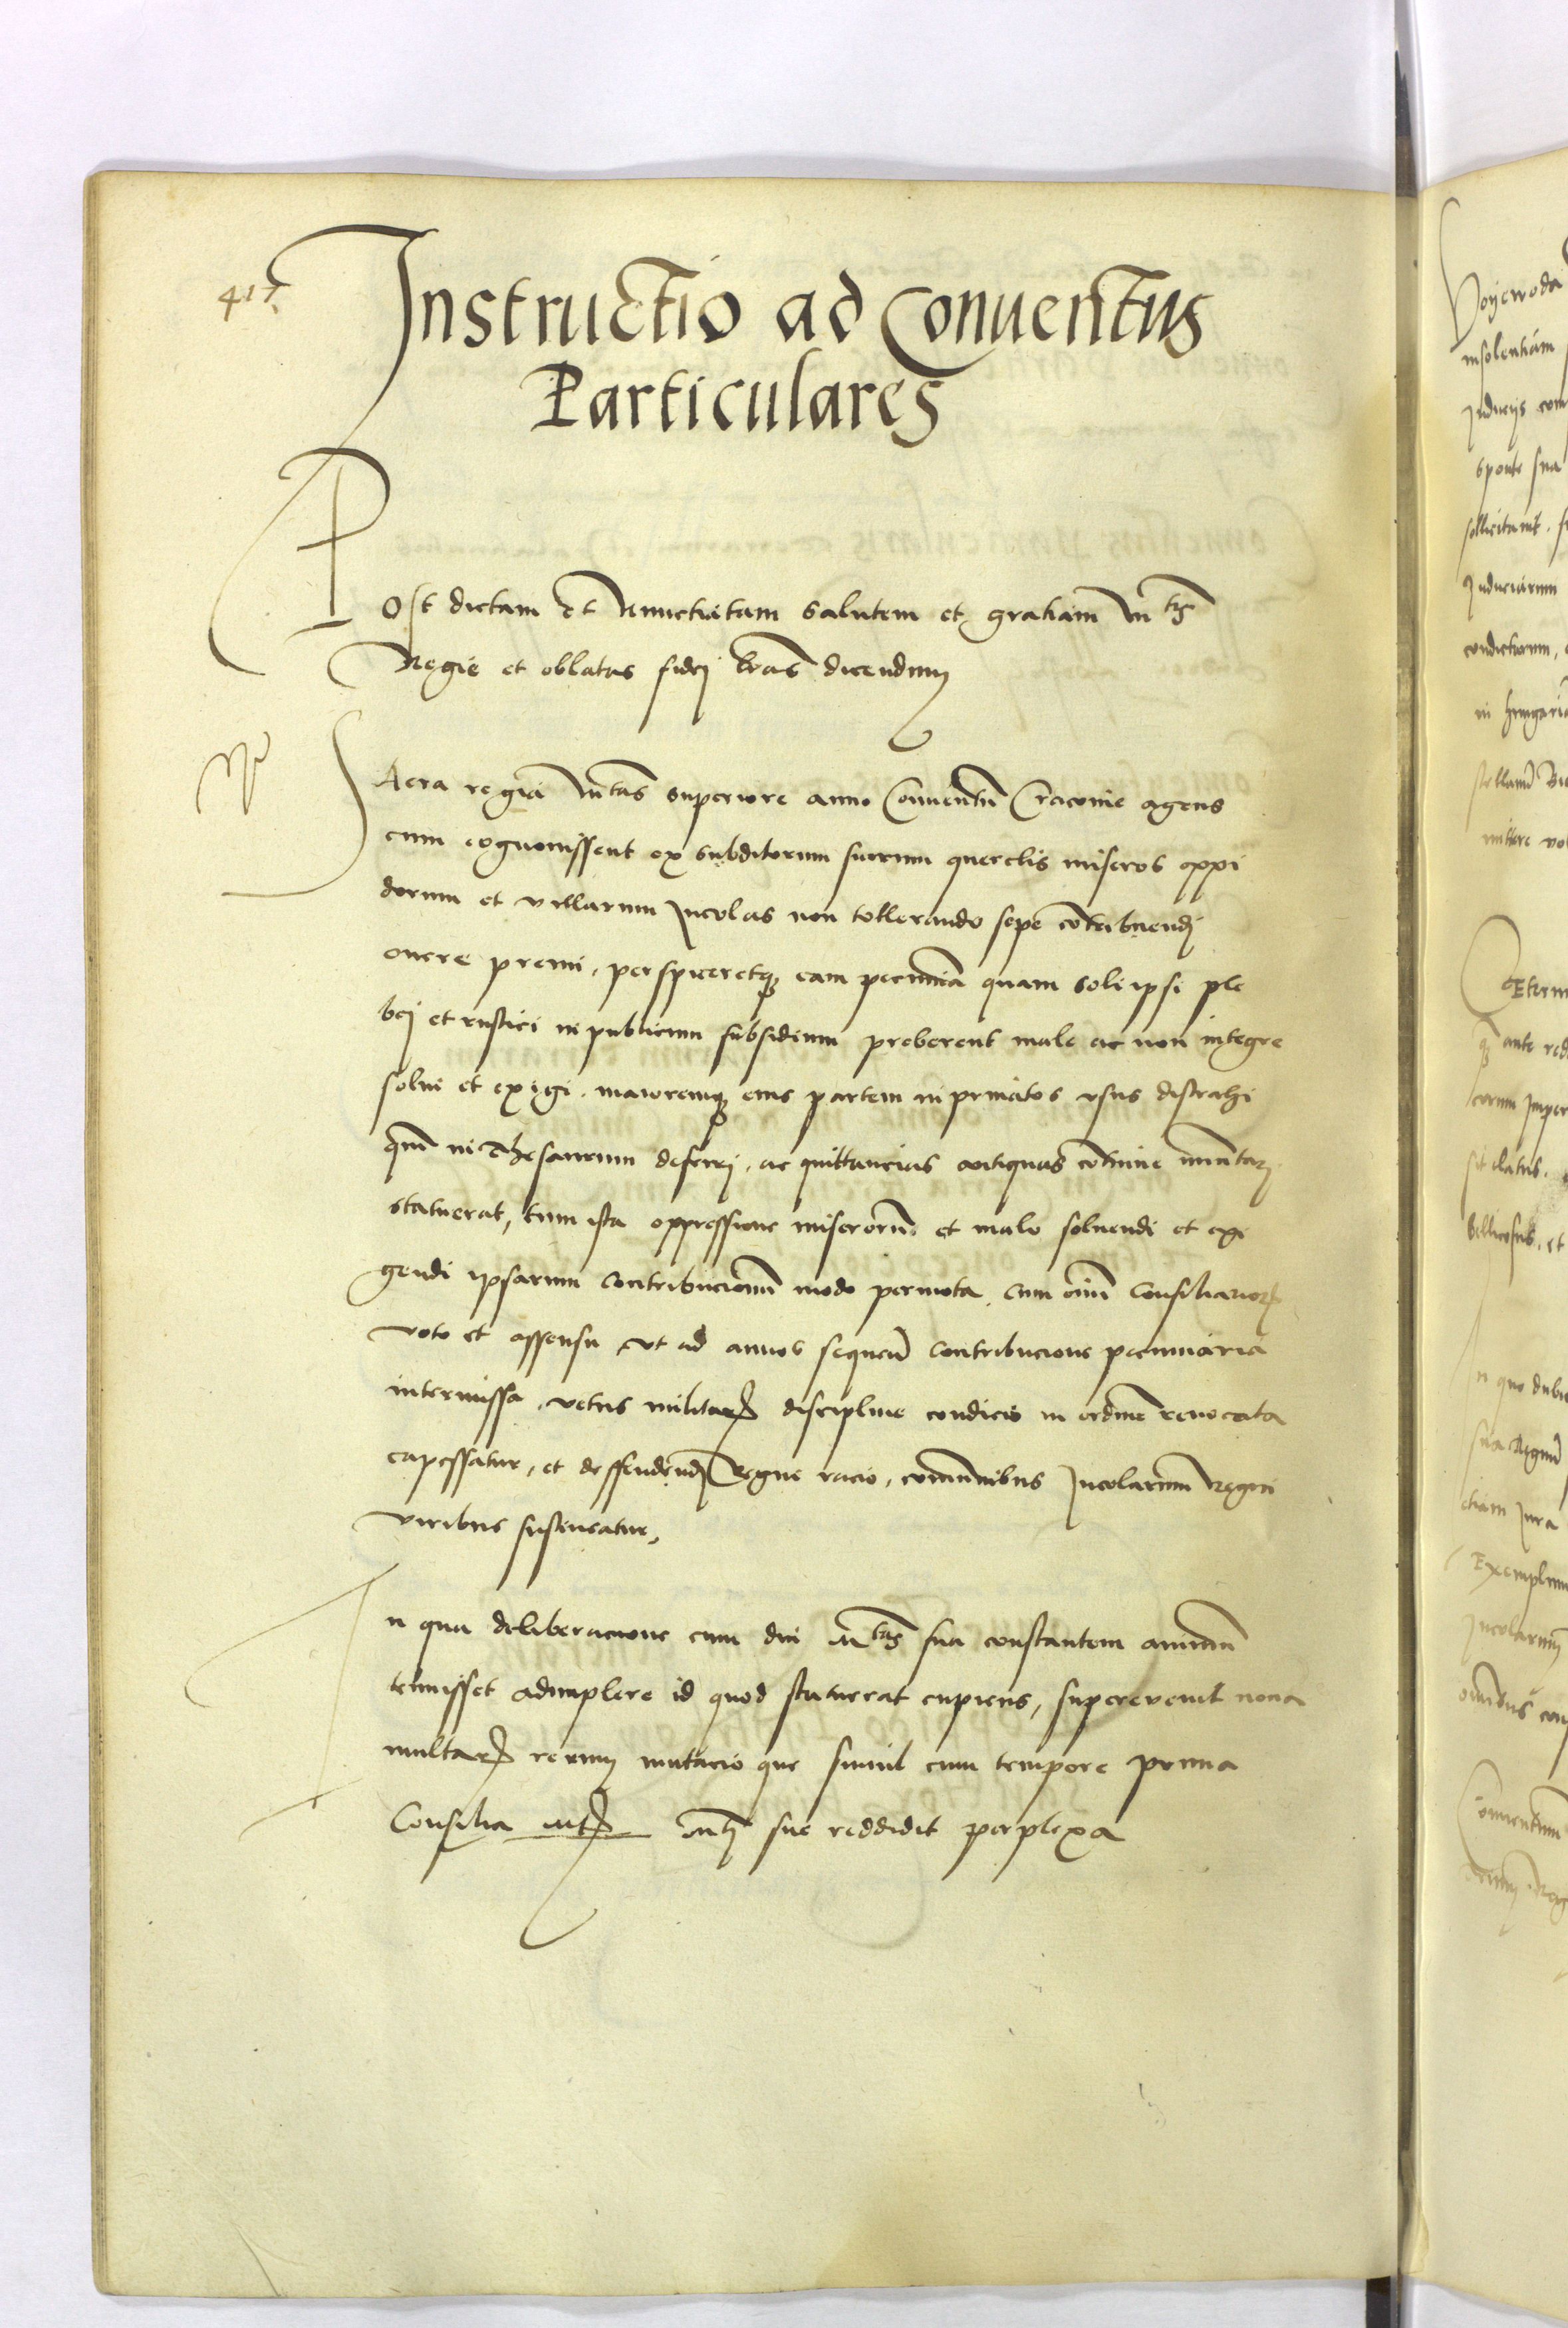 417
Instructio ad Conuentus
Particulares
Post dictam et Nunctiatam salutem et gratiam Mtis
Regie et oblatas fidej lras dicendum
Sacra regia Mtas superiore anno Conuentu Cracovie agens
cum cognouissent ex subditorum suorum querelis miseros oppi
dorum et villarum Jncolas non tollerando sepe contribuendj
onere premi, perspiceretq eam pecunia quam soli ipsi ple
bej et rustici in publicum subsidium preberent male ac non integre
solui et exigi. maioremq eius partem in priuatos vsus distrahi
qm in Thesaurum deferrj, ac quittancias antiquas
statuerat, tum ista oppressione miserorum et malo soluendi et exi
gendi ipsarum contribucionum modo permota, cum oium Consiliarior
voto et assensu vt ad annos sequen contribucione pecuniaria
intermissa, vetus militaris discipline condicio in ordine reuocata
capessatur, et deffendendj Regne racio, comunibus Jncolarum Regni
viribus sustineatur,
In qua deliberacione cum diu Mtas sua constantem animum
tenuisset adimplere id quod statuerat cupiens, superevenit noua
multar rerum mutacio que simul cum tempore prima
Consilia Mtj sue reddidit perplexa
Voyewoda
insolentiam
Jnducijs
sponte sua
sollicitauit.
Jnduciarum
condictiorum,
in hungaria
mittere
ante
eorum Jmper
sit elatus.
bellicosus, et
n quo
sua Regni
etiam Jura
Exemplum
Jncolarum
omnibus
Conuentum